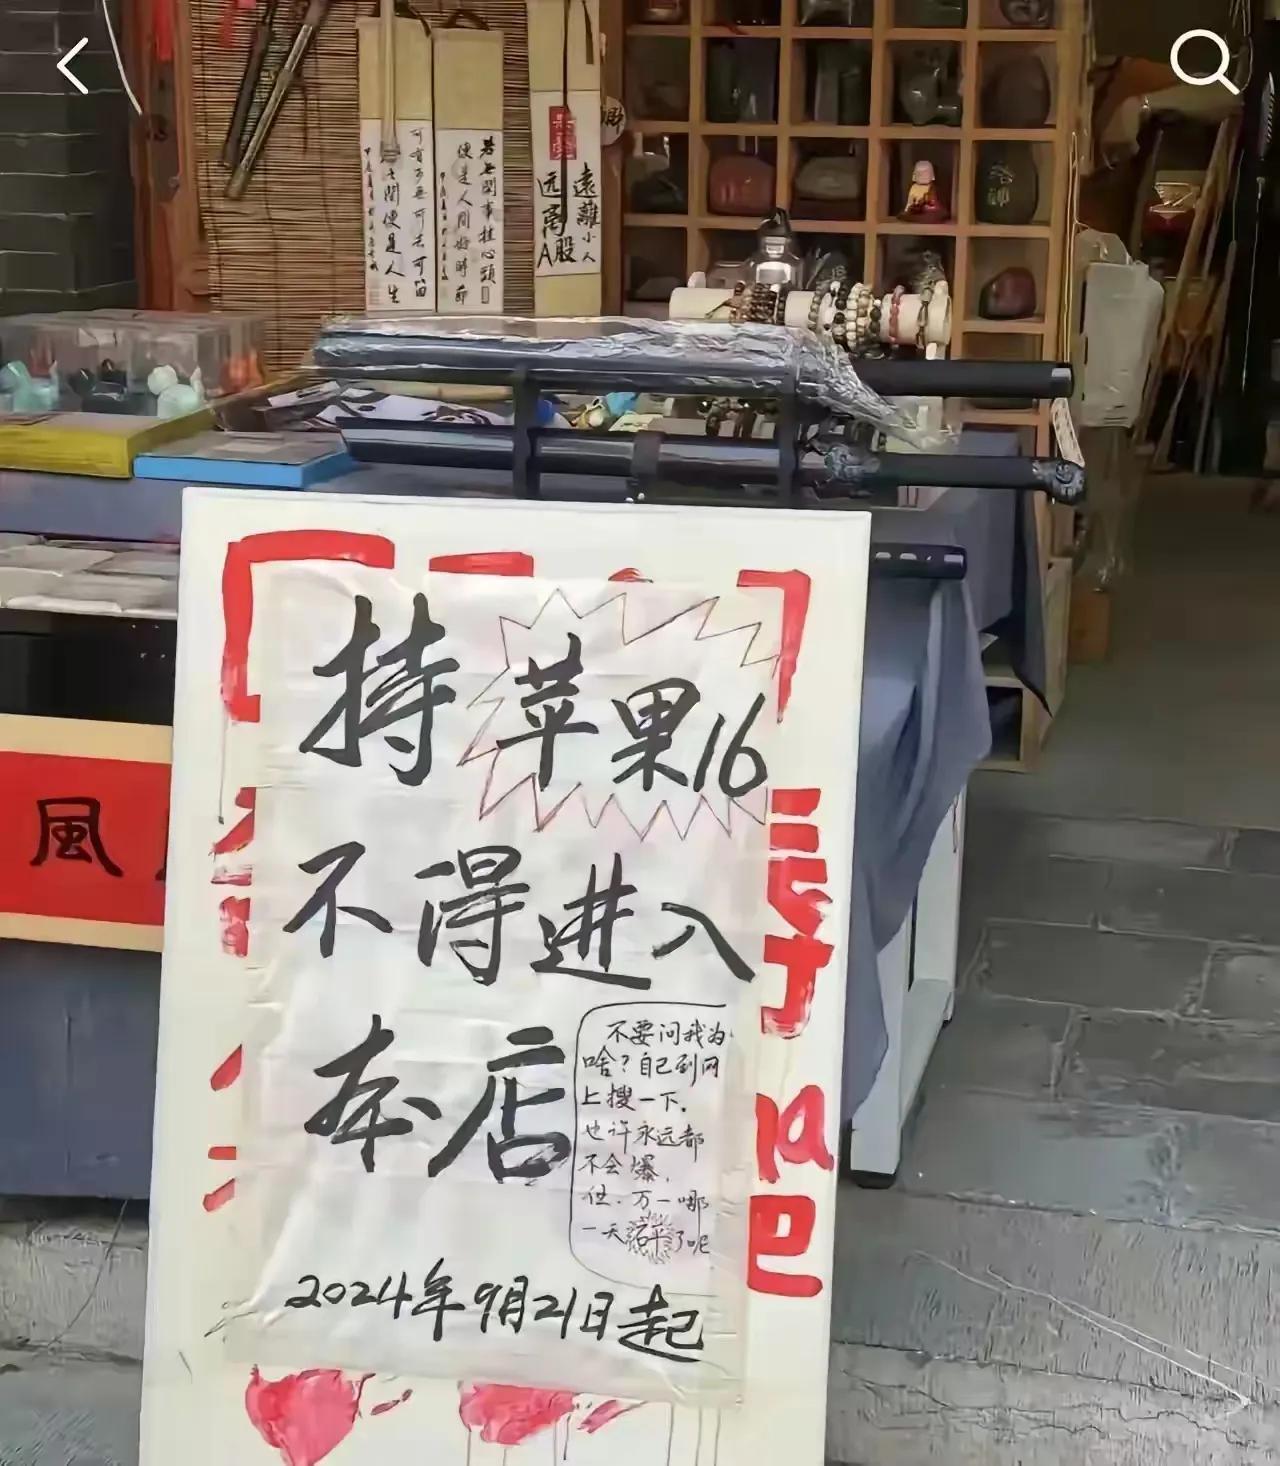 可有可无可去可留
七闲便是人生
若无闲事挂心头
便是人间好时节
遠離小人
远离A股
風
持苹果16
不得进入
本店
不要问我为
啥?自己到网
上搜一下.
也许永远都
不会爆,
但.万一哪
一天砰了呢
2024年9月21日起
吧